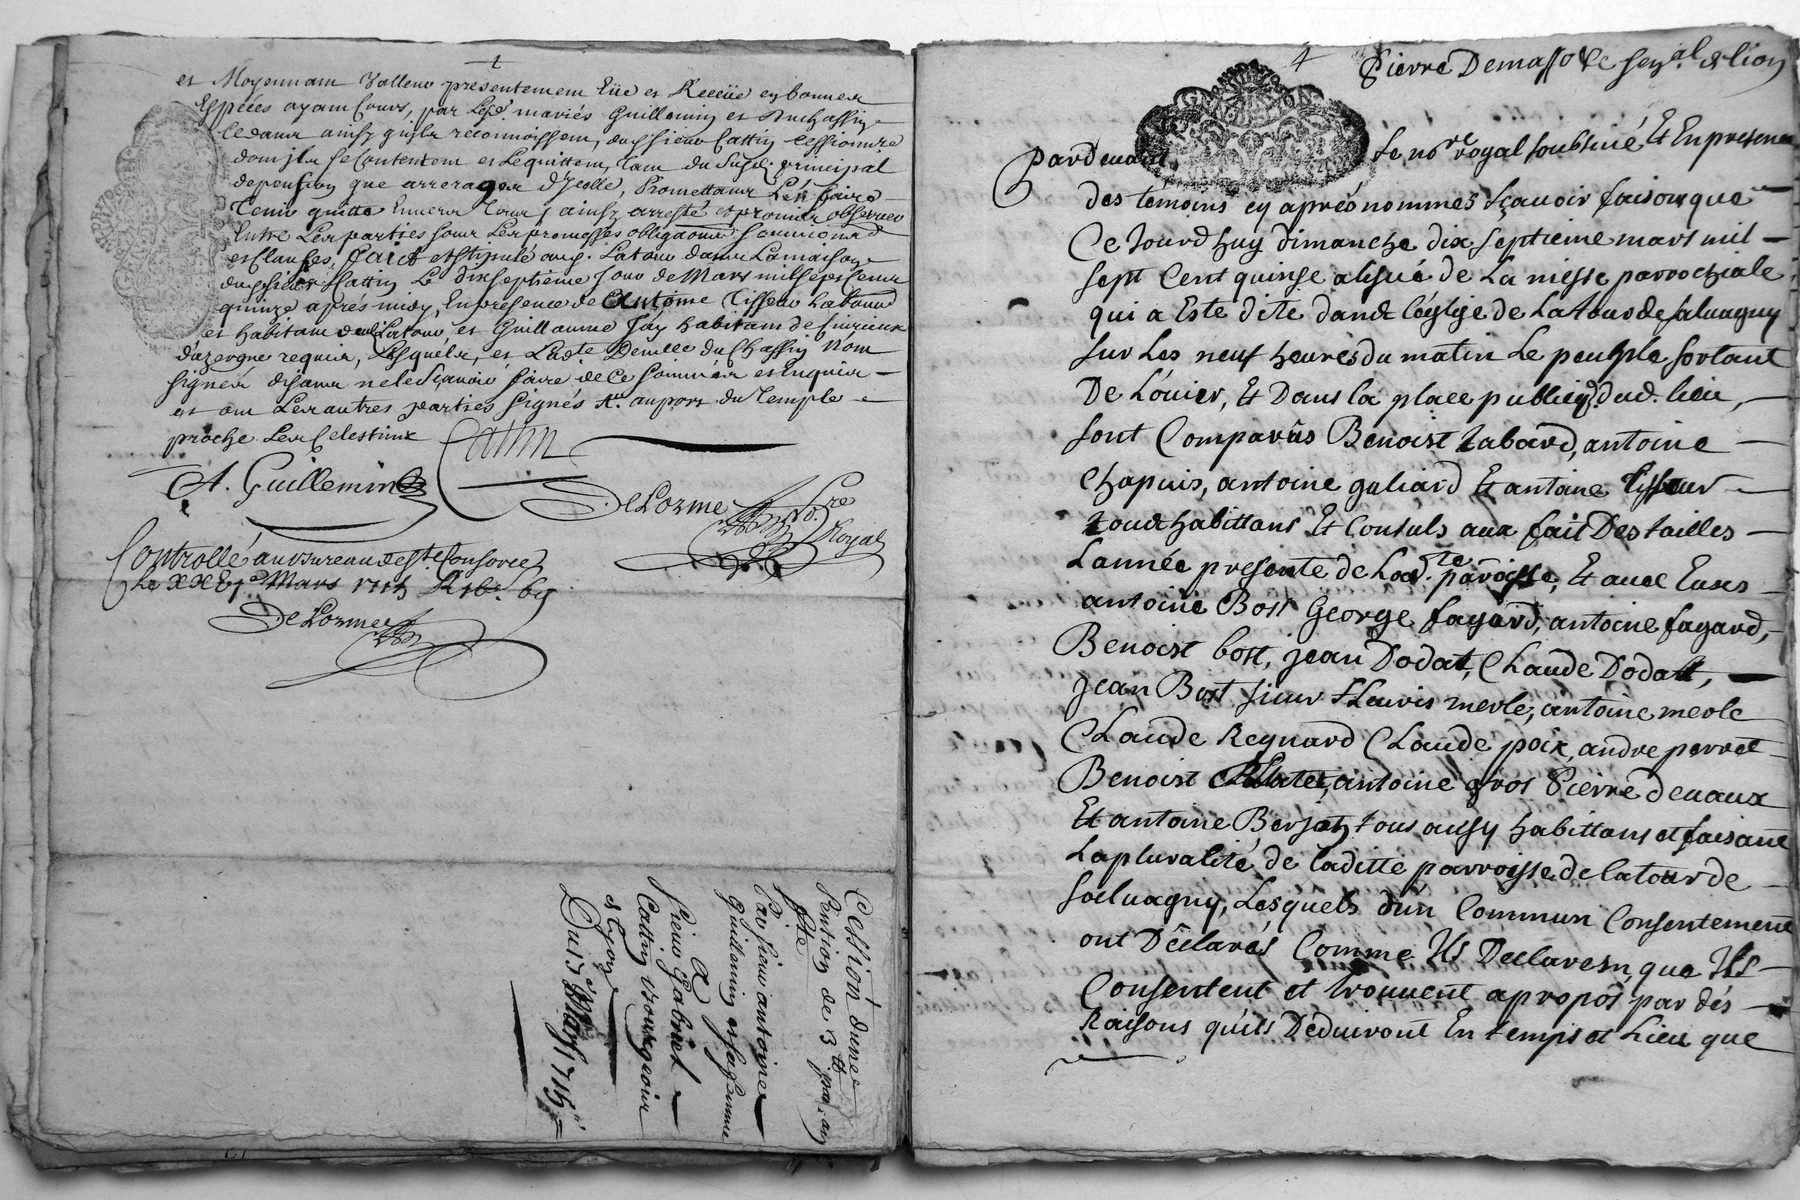 1
et Moyennam Valleur presentement Eüe et Receüe en bonnes
Espèces ayam Cours, par Lesd. mariés Guillemin et Duchassin
Cedans ainsy qu'ils reconnoissent, du sieur Cattin Cessionnre
dom ils se Contentent et Lequittent, Tam du Susd. principal
de pension que arrerages d'Icelle, Promettans L'en faire
Tenir quitte Envers Tous, ainsy arresté et promis observer
Entre Les parties sous Les promesses obligaõns soumions
et Clauses, faict et stipulé aud. Latour dans La maison
du sieur Cattin Le Dixseptieme Jour de Mars mil sept Cens
quinze aprés midy, En presence de Antoine Tisseur Laboure
et habitam dud. Latour, et Guillaume Jay habitam de
d'azergue requis, Lesquels, et Ladte Demlle du Chassin Nom
signés disans ne le Sçavoir faire de Ce sommés et Enquis
et om Les autres parties signés au port du Temple
proche Les Celestins
Cattin
A. Guillemin
DeLorme
Nore Royal
Controllé au bureau de Ste Consorce
Le XXE Mars 1715
DeLorme
Cession d'une
Pention de 3 ₶ par an
fste
Par sieur antoine
Guillemin et sa femme
A
Sieur Gabriel
Cattin Bourgeois
et Lyon
Du 17 Mars 1715
4
Pierre Demasso &c sen.al de Lion
Pardevant Le nore royal soubsiné Et En presence
des temoins cy aprés nommés sçavoir faisons que
Ce Jourd'huy dimanche dix septieme mars mil
sept Cent quinse a lissuë de La messe parrochiale
qui a Este dite dans l'églize de La tour de salvagny
sur Les neuf heures du matin Le peuple sortant
De L'ouier, Et Dans la place publicq. dud. lieu,
sont Comparûs Benoist Tabard, antoine
Chapuis, antoine galiard Et antoine tisseur
tous habittans Et Consuls aux fait Des tailles
L'année presente de Lad.te parroisse, Et avec Euxs
antoine Bost George fayard, antoine fayard,
Benoist bost, jean Dodat, Claude Dodat,
jean Bost sieur Fleuris merle, antoine merle
Claude Reynard Claude poix, andre perret
Benoist antoine gros Pierre devaux
Et antoine Berjat tous aussy habittans et faisant
La pluralité de laditte parroisse de la tour de
salvagny, Lesquels d'un Commun Consentement
ont Déclarés Comme Ils Declarent, que Ils
Consentent et trouvent a propos par dés
Raisons quils Déduiront En temps et Lieu que